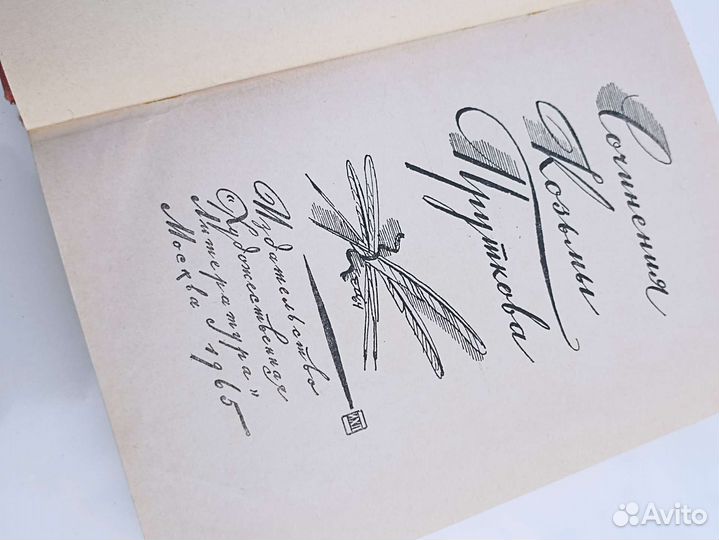 Сочинения
Козьмы
Пруткова
Издательство
„Художественная
Литература"
Москва 1965
Avito